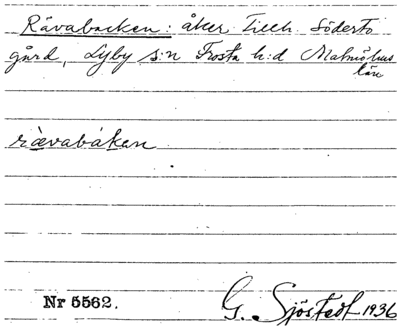 Rävabacken: åker Tillh. Söderto
gård, Lyby s:n Frosta h:d Malmöhus
län
rävabáken
Nr 5562.
G. Sjöstedt 1936